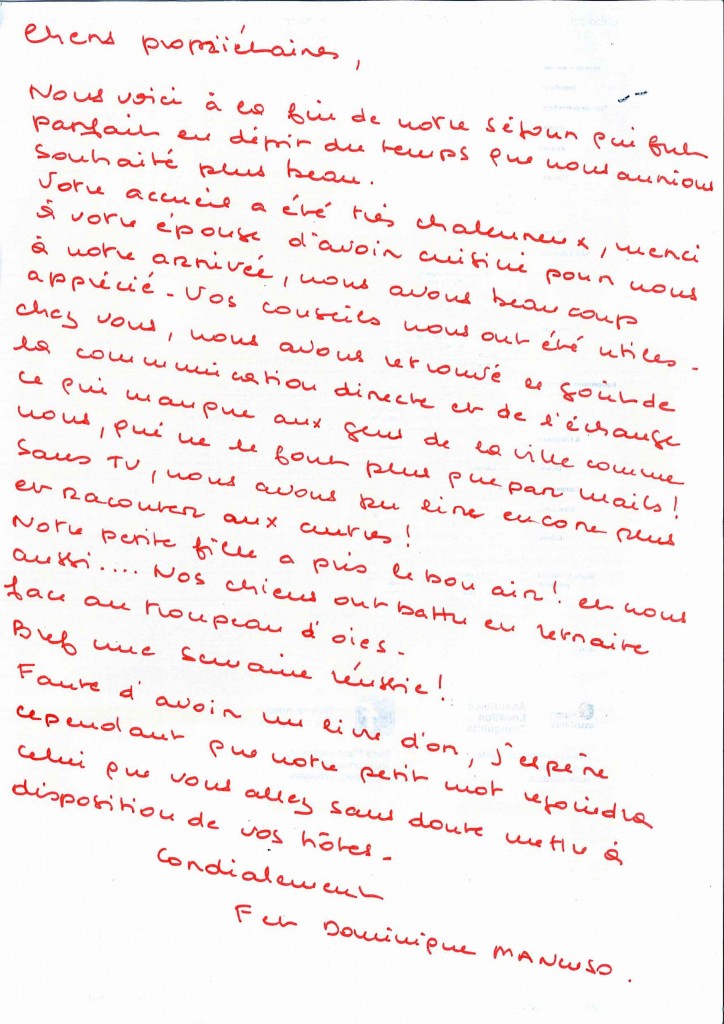 Chers propriétaires,
Nous voici à la fin de notre séjour qui fut
parfait en dépit du temps que nous aurions
souhaité plus beau.
Votre accueil a été très chaleureux, merci
à votre épouse d'avoir cuisiné pour nous
à notre arrivée, nous avons beaucoup
apprécié - Vos conseils nous ont été utiles -
chez vous, nous avons retrouvé le goût de
la communication directe et de l'échange
ce qui manque aux gens de la ville comme
nous, qui ne le font plus que par mails !
Sans TV, nous avons pu lire encore plus
et raconter aux autres !
Notre petite fille a pris le bon air ! et nous
aussi.... Nos chiens ont battu en retraite
face au troupeau d'oies -
Bref une semaine réussie !
Faute d'avoir un livre d'or, j'espère
cependant que notre petit mot rejoindra
celui que vous allez sans doute mettre à
disposition de vos hôtes -
Cordialement
F et Dominique MANCUSO.